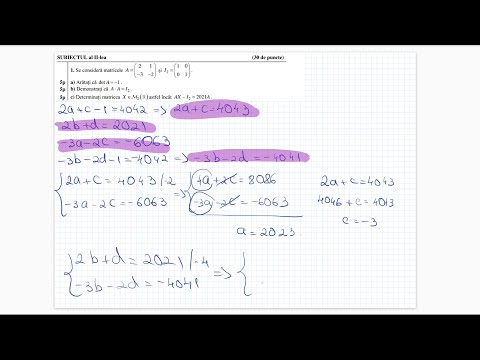 SUBIECTUL al II-lea (30 de puncte)
1. Se consideră matricele A = ( 2 1 ; −3 −2 ) și I₂ = ( 1 0 ; 0 1 ).
5p a) Arătați că det A = −1.
5p b) Demonstrați că A · A = I₂.
5p c) Determinați matricea X ∈ M₂(ℝ) astfel încât AX − I₂ = 2021A.
2a+c−1=4042 => 2a+c=4043
2b+d=2021
−3a−2c=−6063
−3b−2d−1=−4042 => −3b−2d=−4041
{ 2a+c=4043 /·2 => 4a+2c=8086
−3a−2c=−6063 −3a−2c=−6063
a=2023
2a+c=4043
4046+c=4013
c=−3
{ 2b+d=2021 /·4 => {
−3b−2d=−4041